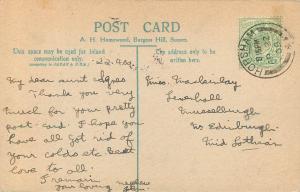 POST CARD
A. H. Homewood, Burgess Hill, Sussex.
This space may be used for inland communication only.
The address only to be written here.
HORSHAM
22.4.09.
My dear aunt Agnes
Thank you very
much for your pretty
post-card. I hope you
have all got rid of
your colds etc. Best
love to all.
I remain
your loving nephew
Miss Maclinlay
Levenhall
Musselburgh
Nr Edinburgh
Mid Lothian